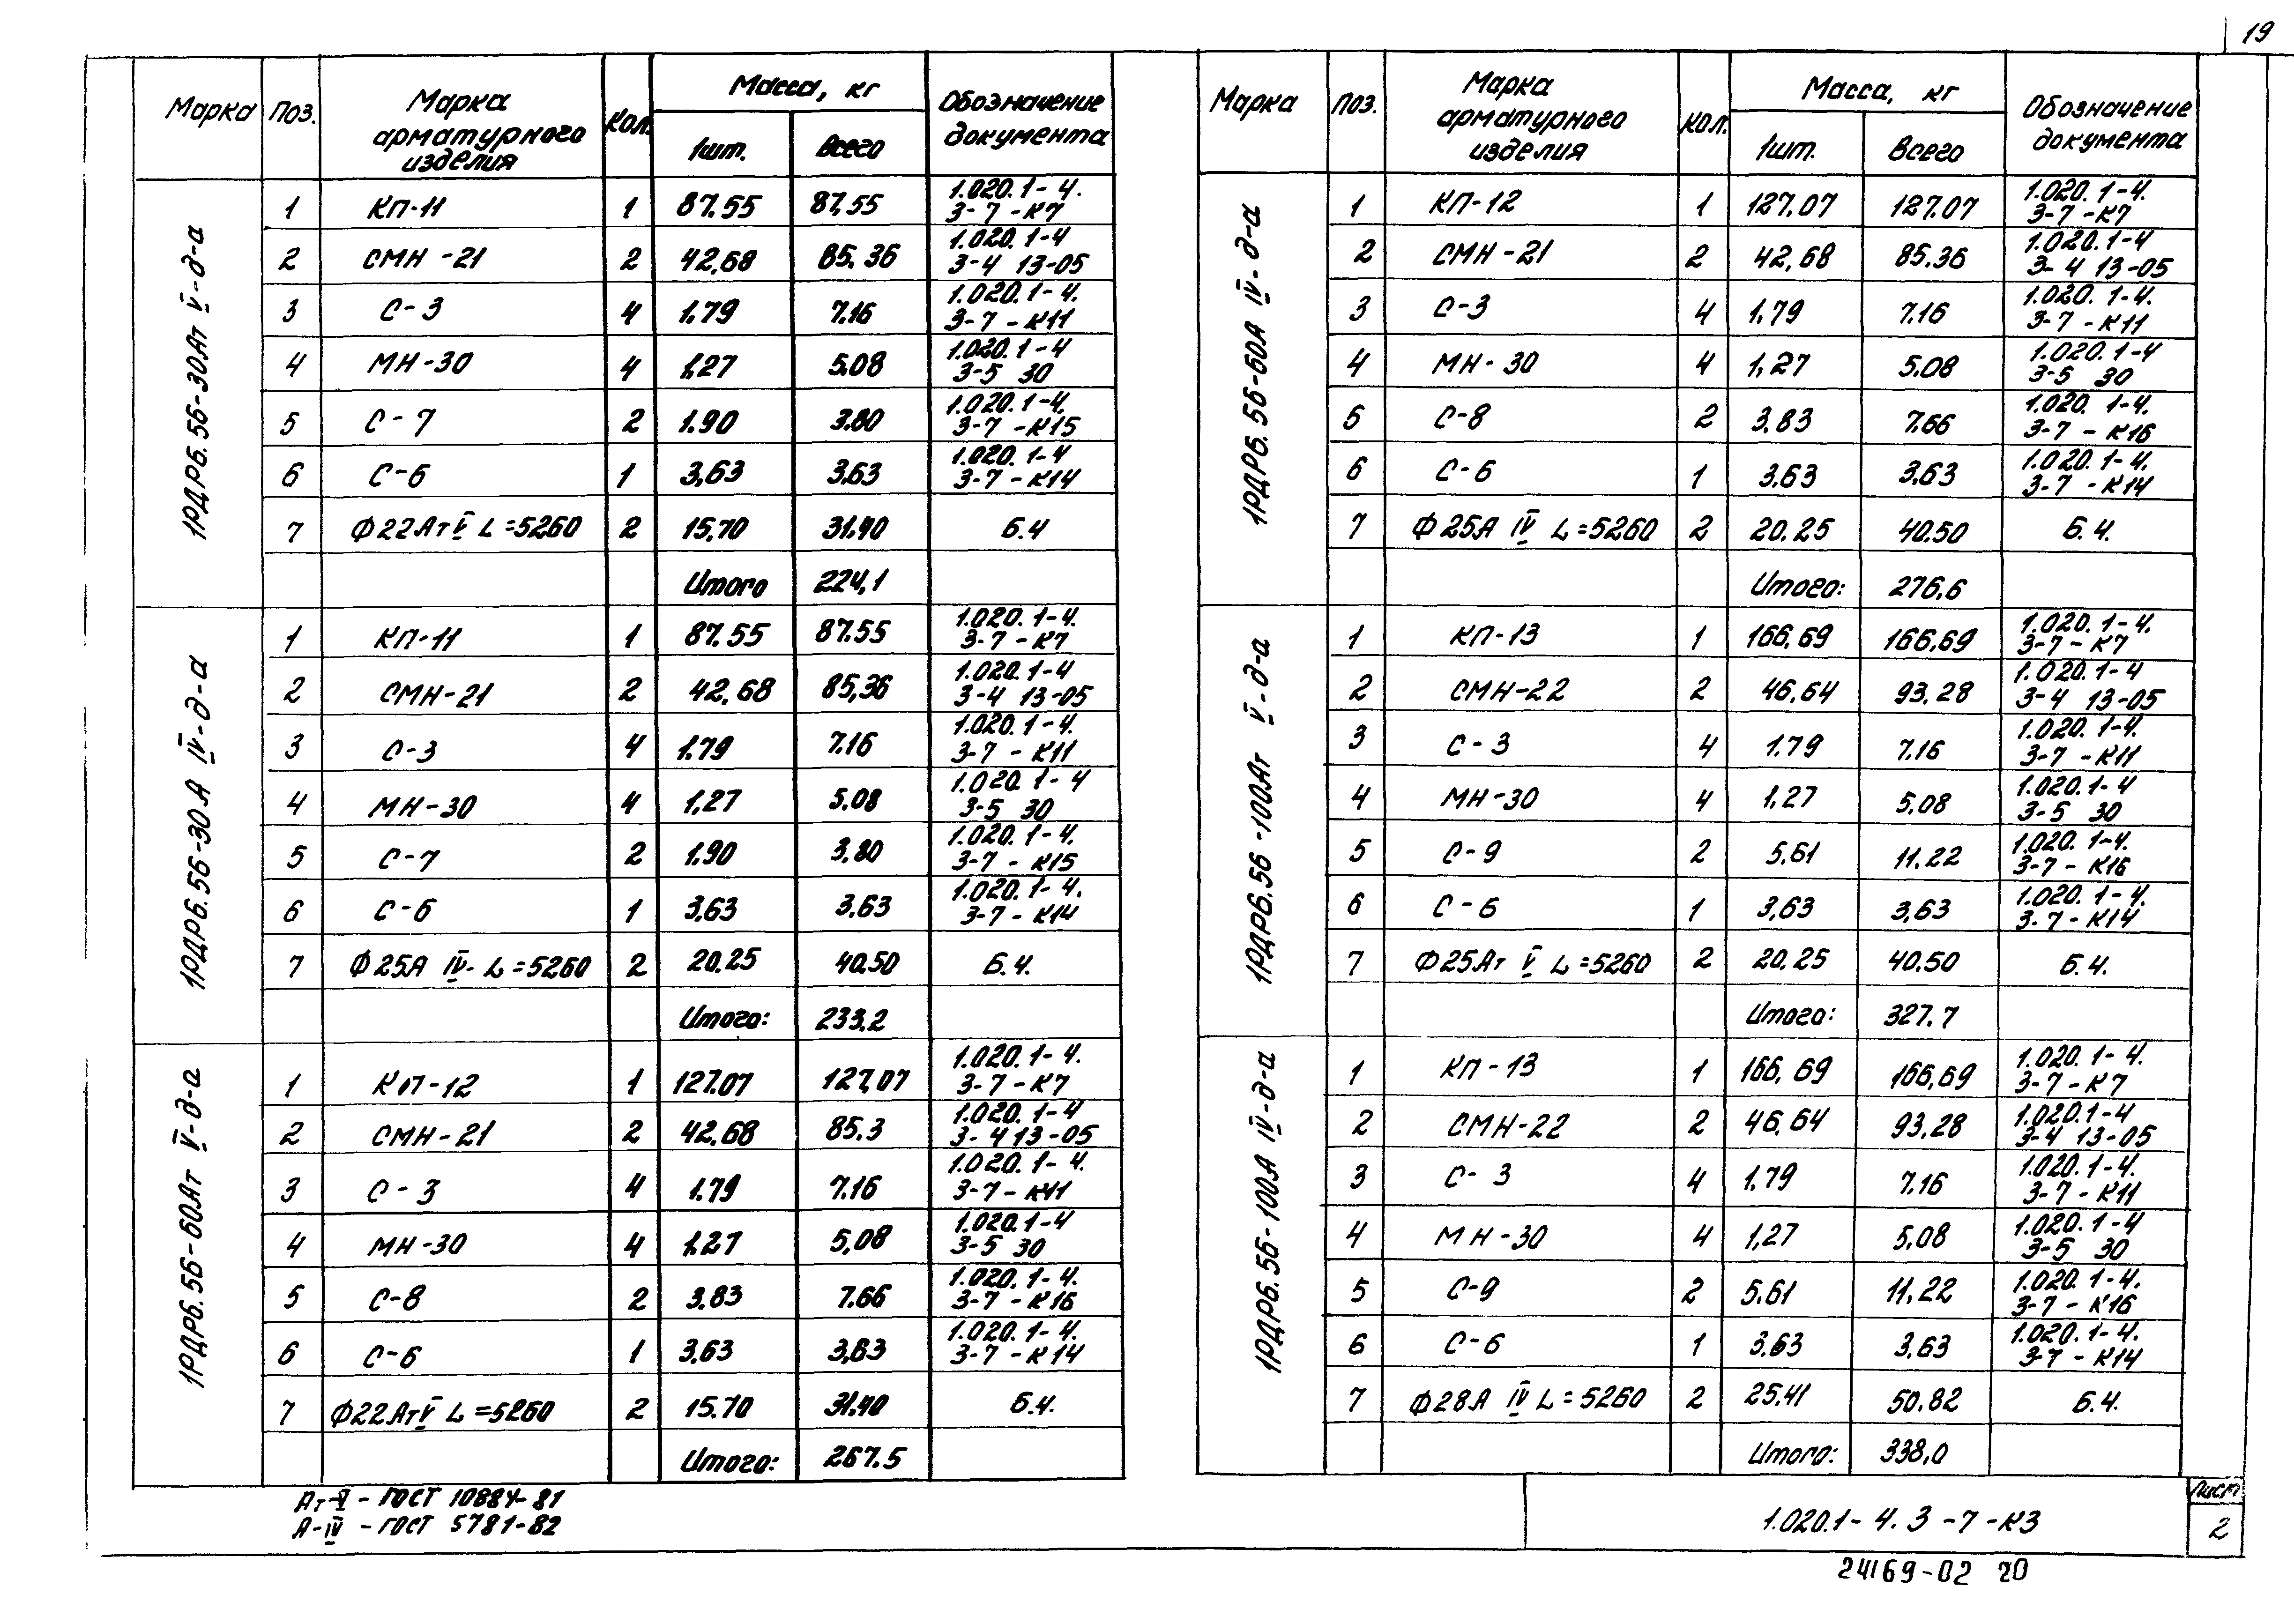 19
Марка Поз. Марка арматурного изделия Кол. Масса, кг 1шт. Всего Обозначение документа
1РДР6.56-30Ат V-д-а
1 КП-11 1 87.55 87,55 1.020.1-4. 3-7-К7
2 СМН-21 2 42,68 85.36 1.020.1-4 3-4 13-05
3 С-3 4 1.79 7.16 1.020.1-4. 3-7-К11
4 МН-30 4 1,27 5.08 1.020.1-4 3-5 30
5 С-7 2 1.90 3.80 1.020.1-4. 3-7-К15
6 С-6 1 3,63 3.63 1.020.1-4 3-7-К14
7 Ф22АтV L=5260 2 15.70 31.40 Б.Ч
Итого 224,1
1РДР6.56-30А IV-д-а
1 КП-11 1 87.55 87.55 1.020.1-4. 3-7-К7
2 СМН-21 2 42,68 85,36 1.020.1-4 3-4 13-05
3 С-3 4 1.79 7.16 1.020.1-4. 3-7-К11
4 МН-30 4 1,27 5.08 1.020.1-4 3-5 30
5 С-7 2 1.90 3,80 1.020.1-4. 3-7-К15
6 С-6 1 3,63 3,63 1.020.1-4. 3-7-К14
7 Ф25А IV- L=5260 2 20.25 40.50 Б.Ч.
Итого: 233.2
1РДР6.56-60Ат V-д-а
1 КП-12 1 127.07 127,07 1.020.1-4. 3-7-К7
2 СМН-21 2 42,68 85.3 1.020.1-4 3-4 13-05
3 С-3 4 1.79 7.16 1.020.1-4. 3-7-К11
4 МН-30 4 1,27 5,08 1.020.1-4 3-5 30
5 С-8 2 3.83 7.66 1.020.1-4. 3-7-К16
6 С-6 1 3,63 3,63 1.020.1-4. 3-7-К14
7 Ф22АтV L=5260 2 15.70 31.40 Б.Ч.
Итого: 267.5
Ат-V - ГОСТ 10884-81
А-IV - ГОСТ 5781-82
Марка Поз. Марка арматурного изделия Кол. Масса, кг 1шт. Всего Обозначение документа
1РДР6.56-60А IV-д-а
1 КП-12 1 127.07 127.07 1.020.1-4. 3-7-К7
2 СМН-21 2 42,68 85.36 1.020.1-4 3-4 13-05
3 С-3 4 1,79 7.16 1.020.1-4. 3-7-К11
4 МН-30 4 1,27 5.08 1.020.1-4 3-5 30
5 С-8 2 3.83 7.66 1.020.1-4. 3-7-К16
6 С-6 1 3.63 3,63 1.020.1-4. 3-7-К14
7 Ф25А IV L=5260 2 20.25 40.50 Б.Ч.
Итого: 276,6
1РДР6.56-100Ат V-д-а
1 КП-13 1 166,69 166,69 1.020.1-4. 3-7-К7
2 СМН-22 2 46,64 93,28 1.020.1-4 3-4 13-05
3 С-3 4 1.79 7.16 1.020.1-4. 3-7-К11
4 МН-30 4 1,27 5.08 1.020.1-4 3-5 30
5 С-9 2 5,61 11.22 1.020.1-4. 3-7-К16
6 С-6 1 3,63 3,63 1.020.1-4. 3-7-К14
7 Ф25Ат V L=5260 2 20.25 40.50 Б.Ч.
Итого: 327.7
1РДР6.56-100А IV-д-а
1 КП-13 1 166,69 166,69 1.020.1-4. 3-7-К7
2 СМН-22 2 46,64 93,28 1.020.1-4 3-4 13-05
3 С-3 4 1.79 7.16 1.020.1-4. 3-7-К11
4 МН-30 4 1,27 5,08 1.020.1-4 3-5 30
5 С-9 2 5.61 11.22 1.020.1-4. 3-7-К16
6 С-6 1 3.63 3,63 1.020.1-4. 3-7-К14
7 Ф28А IV L=5260 2 25.41 50.82 Б.Ч.
Итого: 338,0
1.020.1-4.3-7-К3
Лист
2
24169-02 20